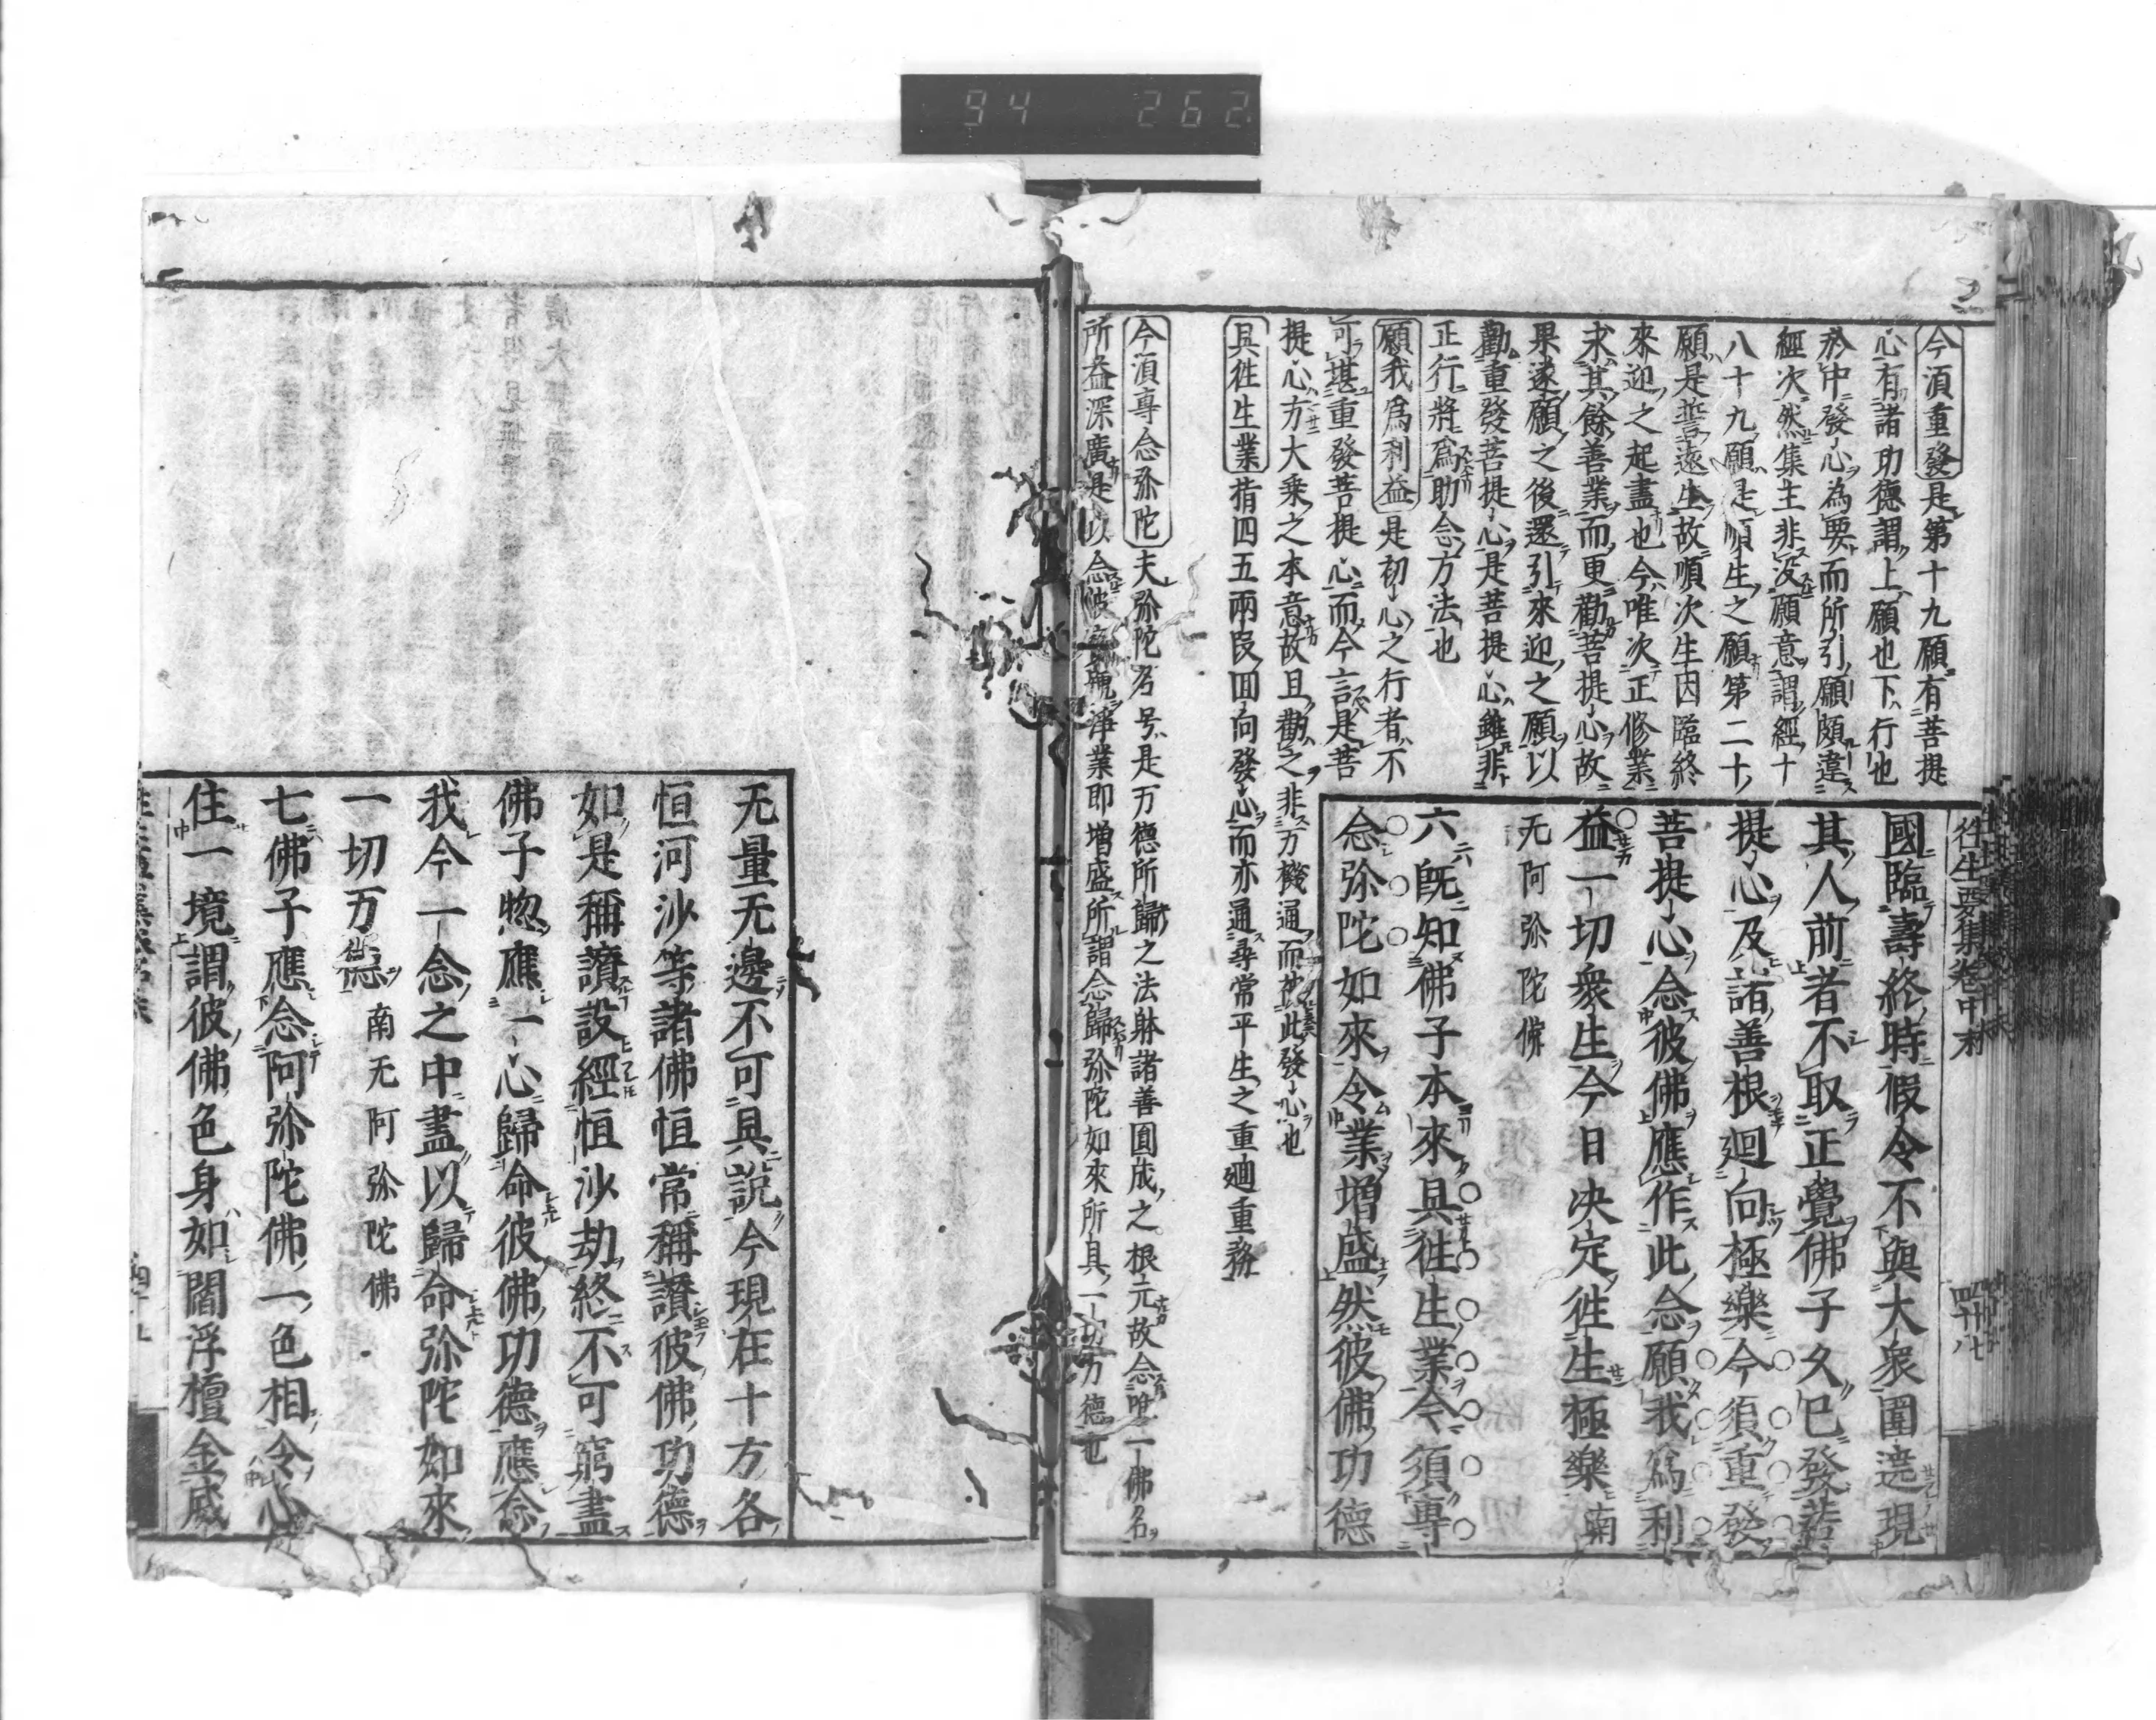 94 262
往生要集卷中末
今須重發是第十九願有菩提
心有諸功德謂上願也下行也
於中發心為要而所引願頗違
經次然集主非沒願意謂經十
八十九願是順生之願第二十
願是誓遠生故順次生因臨終
來迎之起盡也今唯次正修業
求其餘善業而更勸菩提心故
果遂願之後還引來迎之願以
勸重發菩提心是菩提心雖非
正行將為助念方法也
願我為利益是初心之行者不
可堪重發菩提心而今言是菩
提心方大乗之本意故且勸之非万機通而此發心也
具徃生業指四五兩段回向發心而亦通尋常平生之重迴重務
今須專念弥陀夫弥陀名号是万德所歸之法躰諸善圓成之根元故念唯一佛名
所益深廣是以念彼淨業即增盛所謂念歸弥陀如來所具一切万德也
國臨壽終時假令不與大衆圍遶現
其人前者不取正覺佛子久已發菩
提心及諸善根廻向極樂今須重發
菩提心念彼佛應作此念願我為利
益一切衆生今日决定徃生極樂南
无阿弥陀佛
六既知佛子本來具徃生業今須專
念弥陀如來令業增盛然彼佛功德
无量无邊不可具説今現在十方各
恒河沙等諸佛恒常稱讚彼佛功德
如是稱讚設經恒沙劫終不可窮盡
佛子惣應一心歸命彼佛功德應念
我今一念之中盡以歸命弥陀如來
一切万德南无阿弥陀佛
七佛子應念阿弥陀佛一色相令心
住一境謂彼佛色身如閻浮檀金威